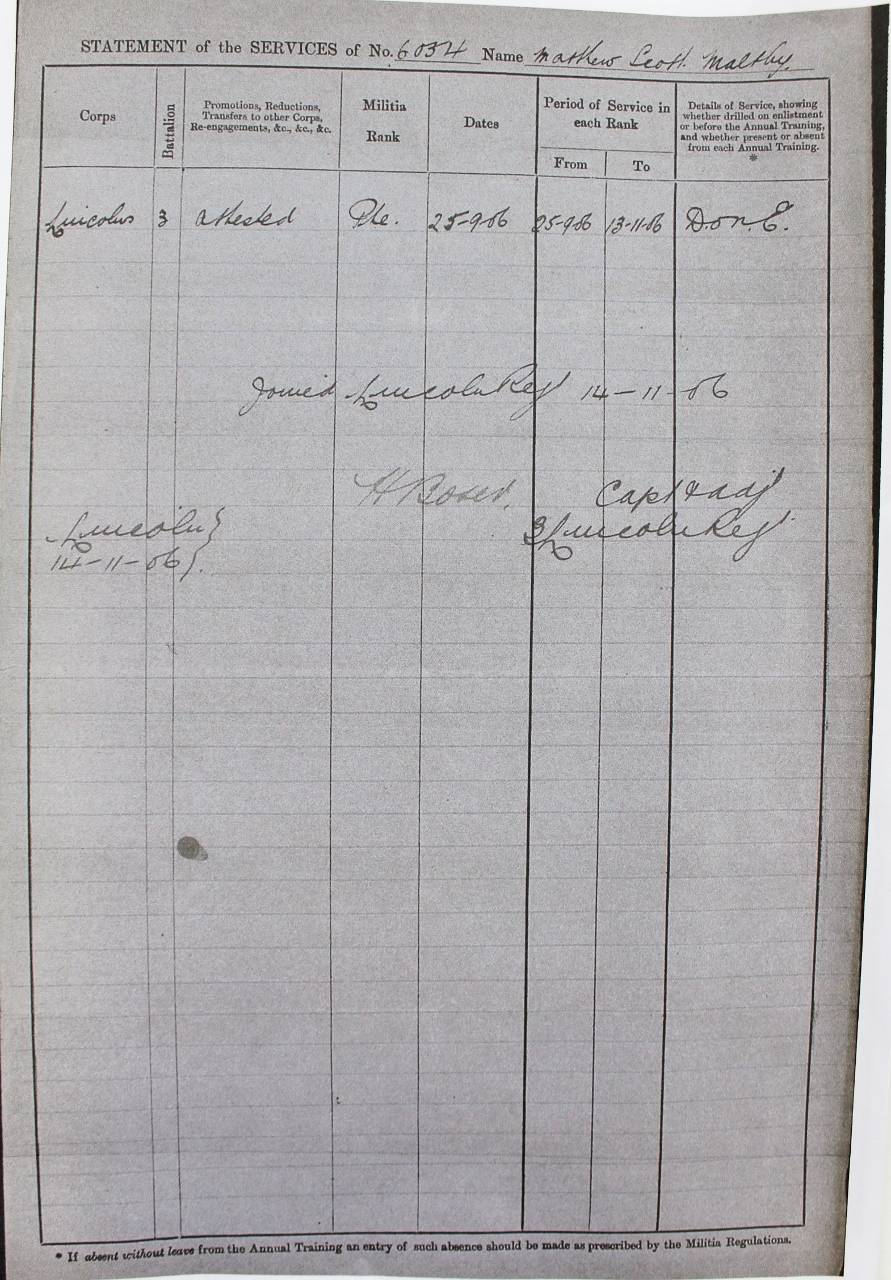 STATEMENT of the SERVICES of No. 6034 Name Mathew Scott Maltby.
Corps
Battalion
Promotions, Reductions,
Transfers to other Corps,
Re-engagements, &c., &c., &c.
Militia
Rank
Dates
Period of Service in
each Rank
From To
Details of Service, showing
whether drilled on enlistment
or before the Annual Training,
and whether present or absent
from each Annual Training.
*
Lincolns 3 attested Pte. 25-9-06 25-9-06 13-11-06 D.on.E.
Joined Lincoln Regt 14-11-06
H Capt & adj
Lincoln } 3 Lincoln Regt
14-11-06 }.
* If absent without leave from the Annual Training an entry of such absence should be made as prescribed by the Militia Regulations.